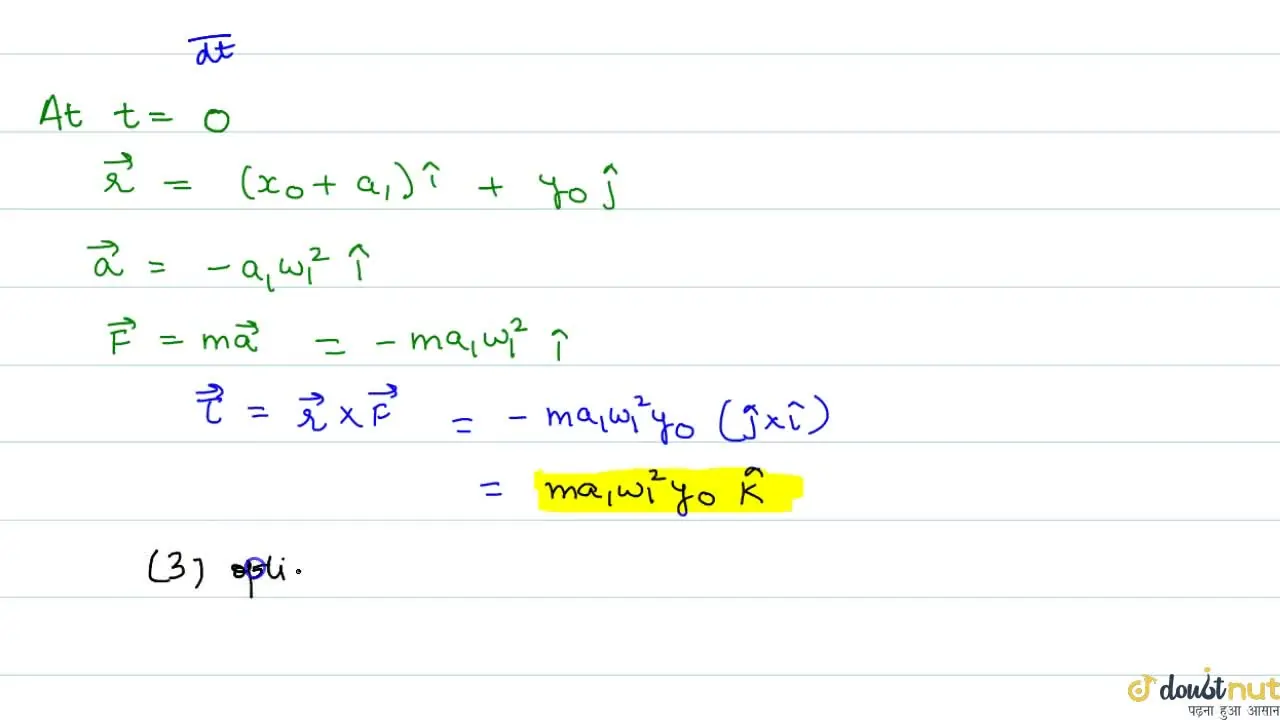 dt
At t = 0
r⃗ = (x₀ + a₁) î + y₀ ĵ
a⃗ = - a₁ω₁² î
F⃗ = ma⃗ = - ma₁ω₁² î
τ⃗ = r⃗ × F⃗ = - ma₁ω₁² y₀ (ĵ × î)
= ma₁ω₁² y₀ k̂
(3) opti.
doubtnut
पढ़ना हुआ आसान